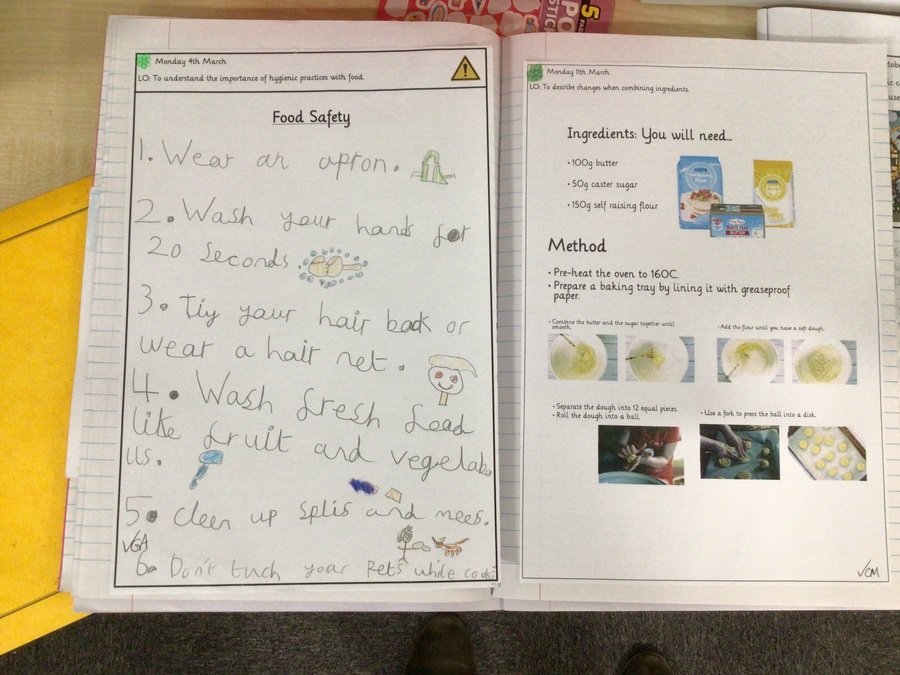 5
PO
STICK
Monday 4th March
LO: To understand the importance of hygienic practices with food.
Food Safety
1. Wear an apron.
2. Wash your hands for
20 seconds.
3. Tiy your hair back or
wear a hair net.
4. Wash fresh food
like fruit and vegetaba
us.
5. cleen up splis and mees.
VGA
6. Don't tuch your Pets while cooki
Monday 11th March
LO: To describe changes when combining ingredients.
Ingredients: You will need...
• 100g butter
• 50g caster sugar
• 150g self raising flour
BRITISH
BUTTER
Method
• Pre-heat the oven to 160C.
• Prepare a baking tray by lining it with greaseproof
paper.
• Combine the butter and the sugar together until
smooth.
• Add the flour until you have a soft dough.
• Separate the dough into 12 equal pieces.
• Roll the dough into a ball.
• Use a fork to press the ball into a disk.
VCM